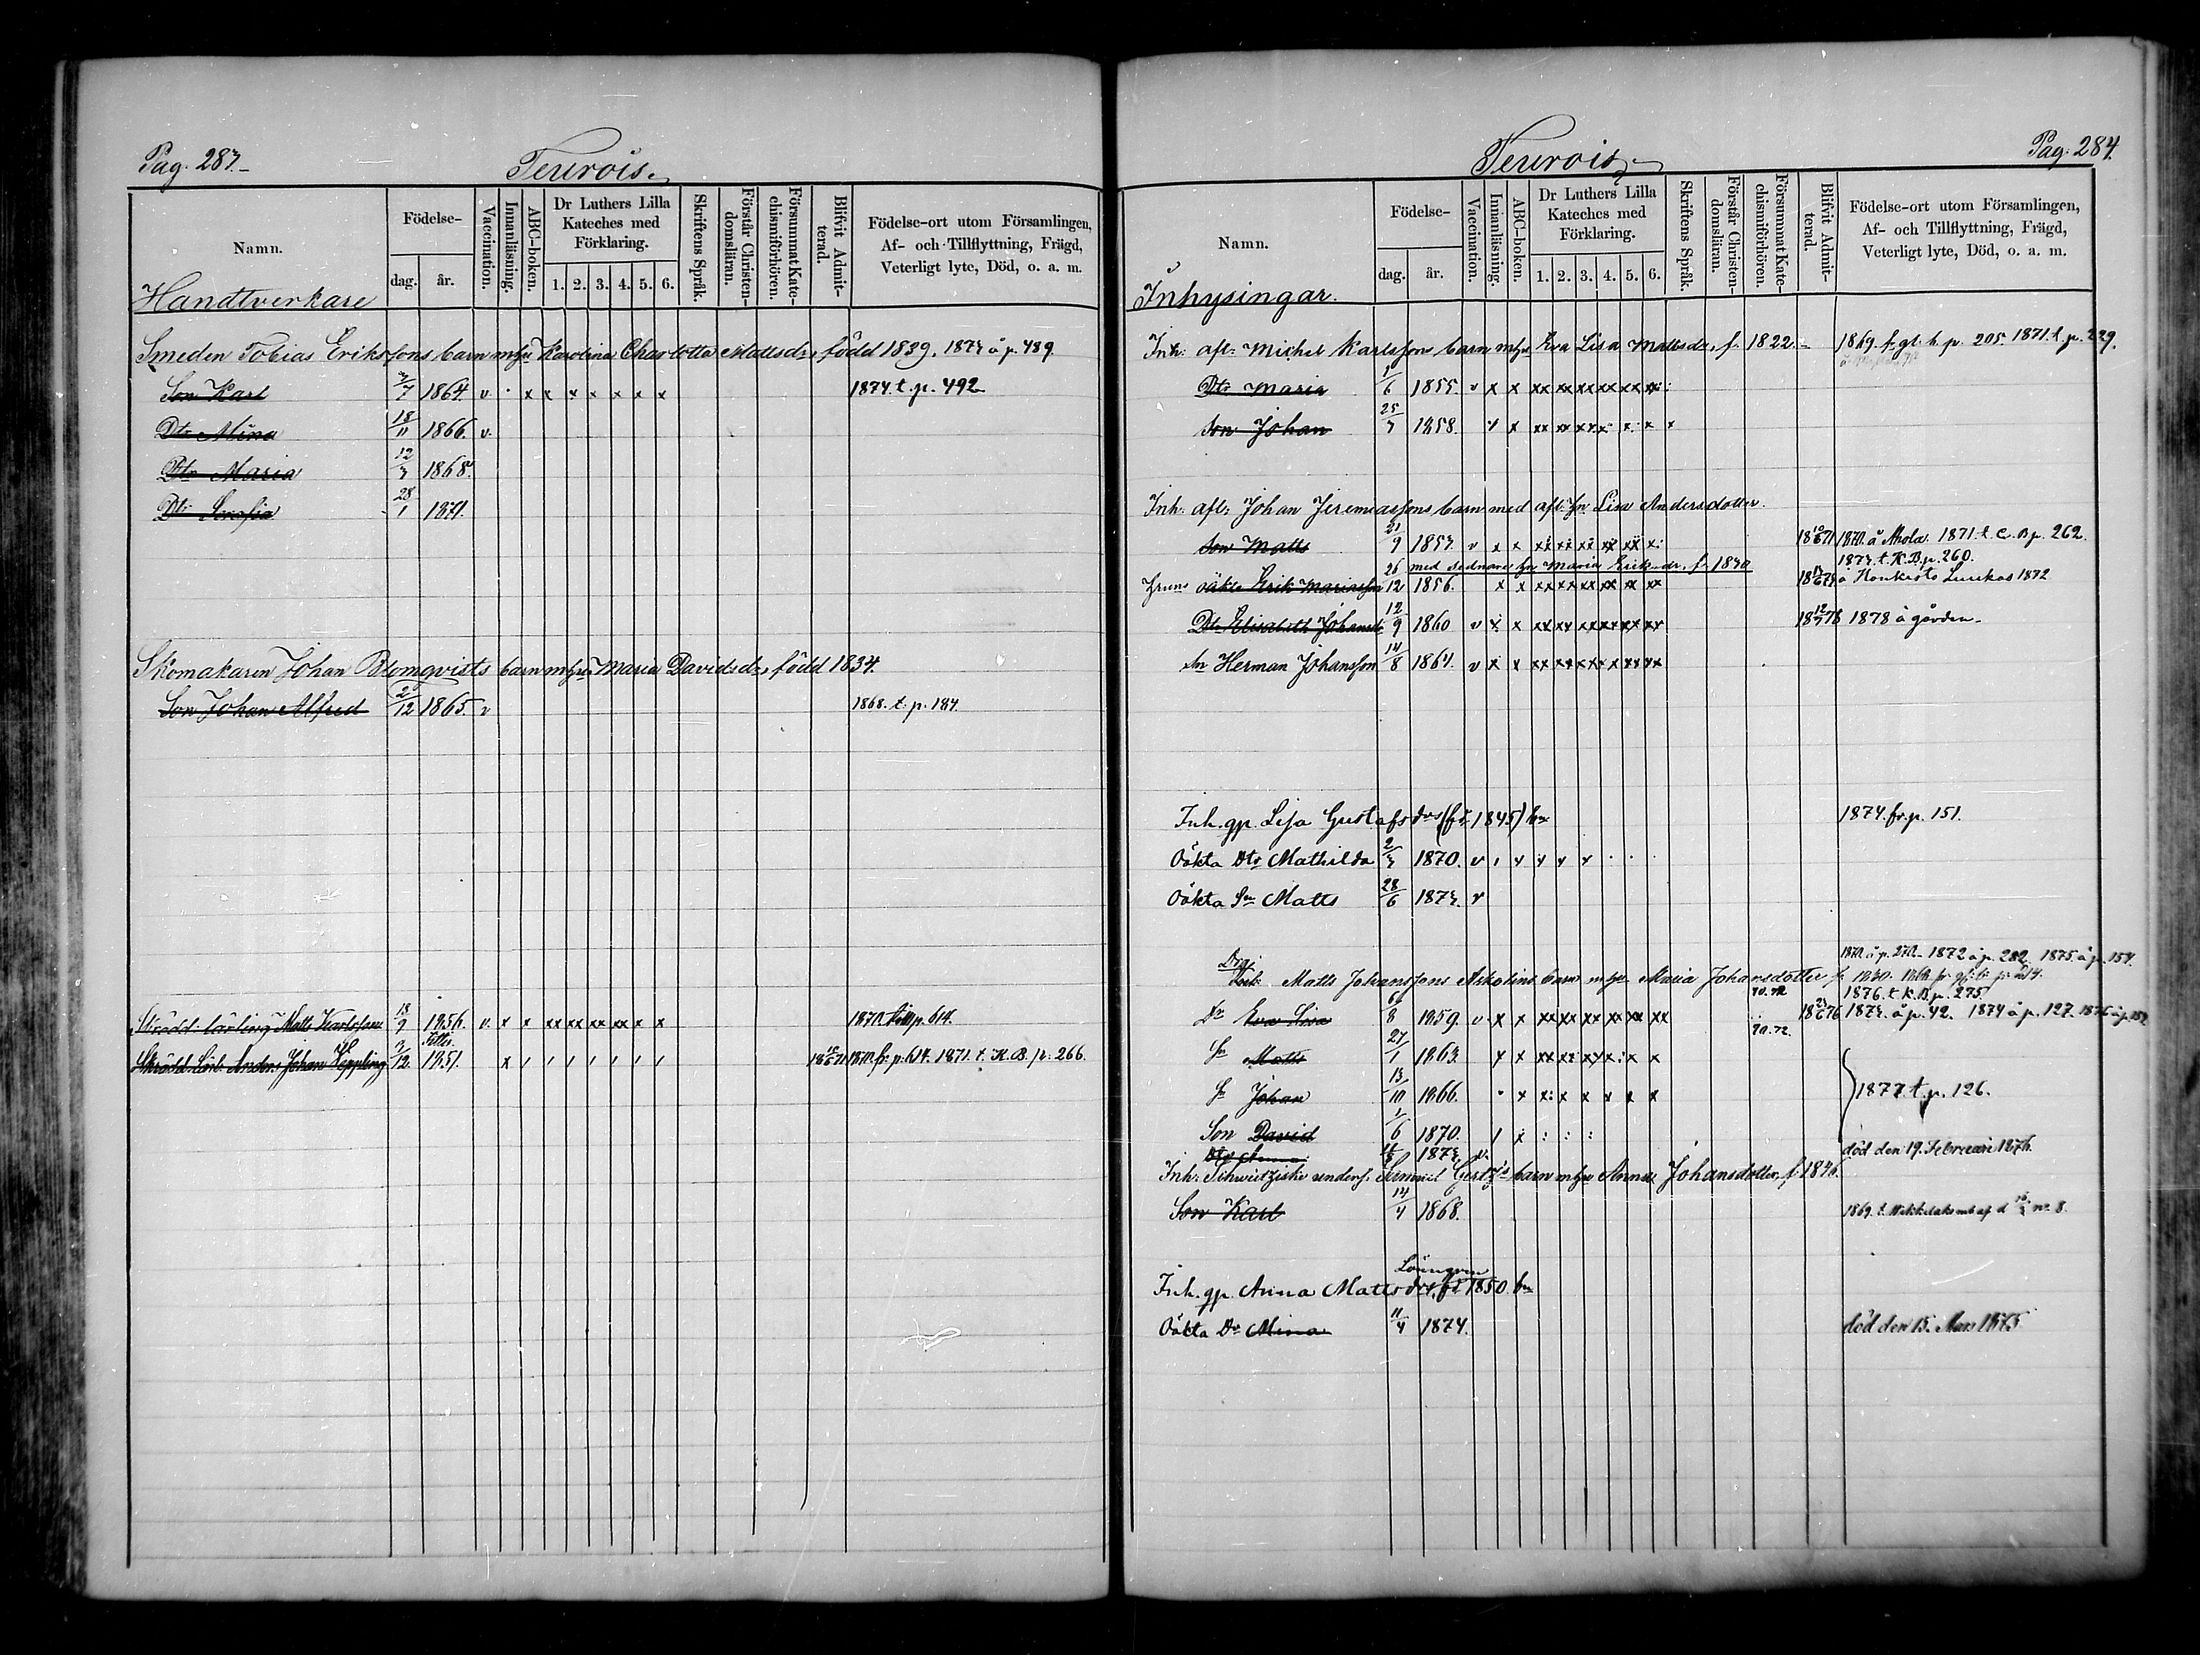 Pag. 283.
Teurois.
Namn.
Födelse-
dag. år.
Vaccination.
Innanläsning.
ABC-boken.
Dr Luthers Lilla Kateches med Förklaring.
1. 2. 3. 4. 5. 6.
Skriftens Språk.
Förstår Christendomsläran.
Försummat Katechismiförhören.
Blifvit Admitterad.
Födelse-ort utom Församlingen,
Af- och Tillflyttning, Frägd,
Veterligt lyte, Död, o. a. m.
Handtverkare
Smeden Tobias Erikssons barn m hu Karolina Charlotta Mattsdr, född 1839. 1873 å p. 489.
Son Karl 3/7 1864. v. · x x x x x x x 1874 t. p. 492
Dtr Mina 18/11 1866. v.
Dtr Maria 12/3 1868.
Dtr Serafia 28/1 1871.
Skomakaren Johan Blomqvists barn m hu Maria Davidsdr, född 1834.
Son Johan Alfred 2/12 1865. v 1868. t. p. 184.
Skrädd. lärling Matts Karlsson 18/9 1856. v. x x xx xx xx xx x x 1870. till p. 614.
Skrädd. Lärl. Anders Johan Keppling 3/12 1851. x 1871 1870. fr. p. 614. 1871. t. K. B. p. 266.
Pag. 284.
Teurois.
Namn.
Födelse-
dag. år.
Vaccination.
Innanläsning.
ABC-boken.
Dr Luthers Lilla Kateches med Förklaring.
1. 2. 3. 4. 5. 6.
Skriftens Språk.
Förstår Christendomsläran.
Försummat Katechismiförhören.
Blifvit Admitterad.
Födelse-ort utom Församlingen,
Af- och Tillflyttning, Frägd,
Veterligt lyte, Död, o. a. m.
Inhysingar.
Inh. afl. Michel Karlsson barn m hu Eva Lisa Mattsdr, f. 1822. 1869. f. gl. b. p. 205. 1871. t. p. 229.
Dtr Maria 1/6 1855. v x x xx xx xx xx xx xx
Son Johan 25/7 1858. v x xx xx xx x x x
Inh. afl. Johan Jeremiassons barn med afl. hu Lisa Andersdotter.
Son Matts 21/9 1853. v x x 1870. å Ahola. 1871. t. C. B. p. 262.
med sednare hu Maria Eriksdr, f. 1830 1873. t. K. B. p. 260.
oäkta Erik Mariasson 26/12 1856. x x xx xx xx xx xx xx å Honkisto Luukas 1872
Dtr Elisabeth Johansdr 12/9 1860 v x x 1878 å gården.
Sn Herman Johansson 14/8 1864. v x x
Inh. gp. Lisa Gustafsdrs (fd. 1845) bn 1874. fr. p. 151.
Oäkta Dtr Mathilda 2/3 1870. v
Oäkta Sn Matts 28/6 1873. v
1870. å p. 270. 1872 å p. 282. 1875 å p. 154.
Drg. Inh. Matts Johanssons Askolins barn m hu Maria Johansdotter f. 1830.
1876. t. K. B. p. 275.
70. 72
Dr Eva Lisa 1859. v. x x 1873. å p. 42. 1874 å p. 127.
70. 72.
Sn Matts 27/1 1863.
Sn Johan 13/10 1866. 1877. t. p. 126.
Son David 1/6 1870.
Dtr Anna 1873. v. död den 19. Februari 1876.
Inh. Schweitziske unders. Samuel barn m hu Anna Johansdotter, f. 1846.
Son Karl 14/4 1868. 1869. t.
Lönngren
Inh. gp. Anna Mattsdrs, fd. 1850 bn
Oäkta Dr Mina 11/4 1874. död den 15. Mars 1875